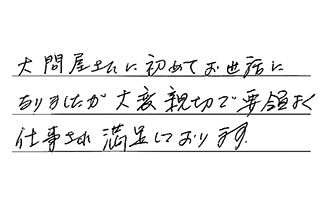 大問屋さんに初めてお世話に
なりましたが大変親切で要領よく
仕事され満足しております.